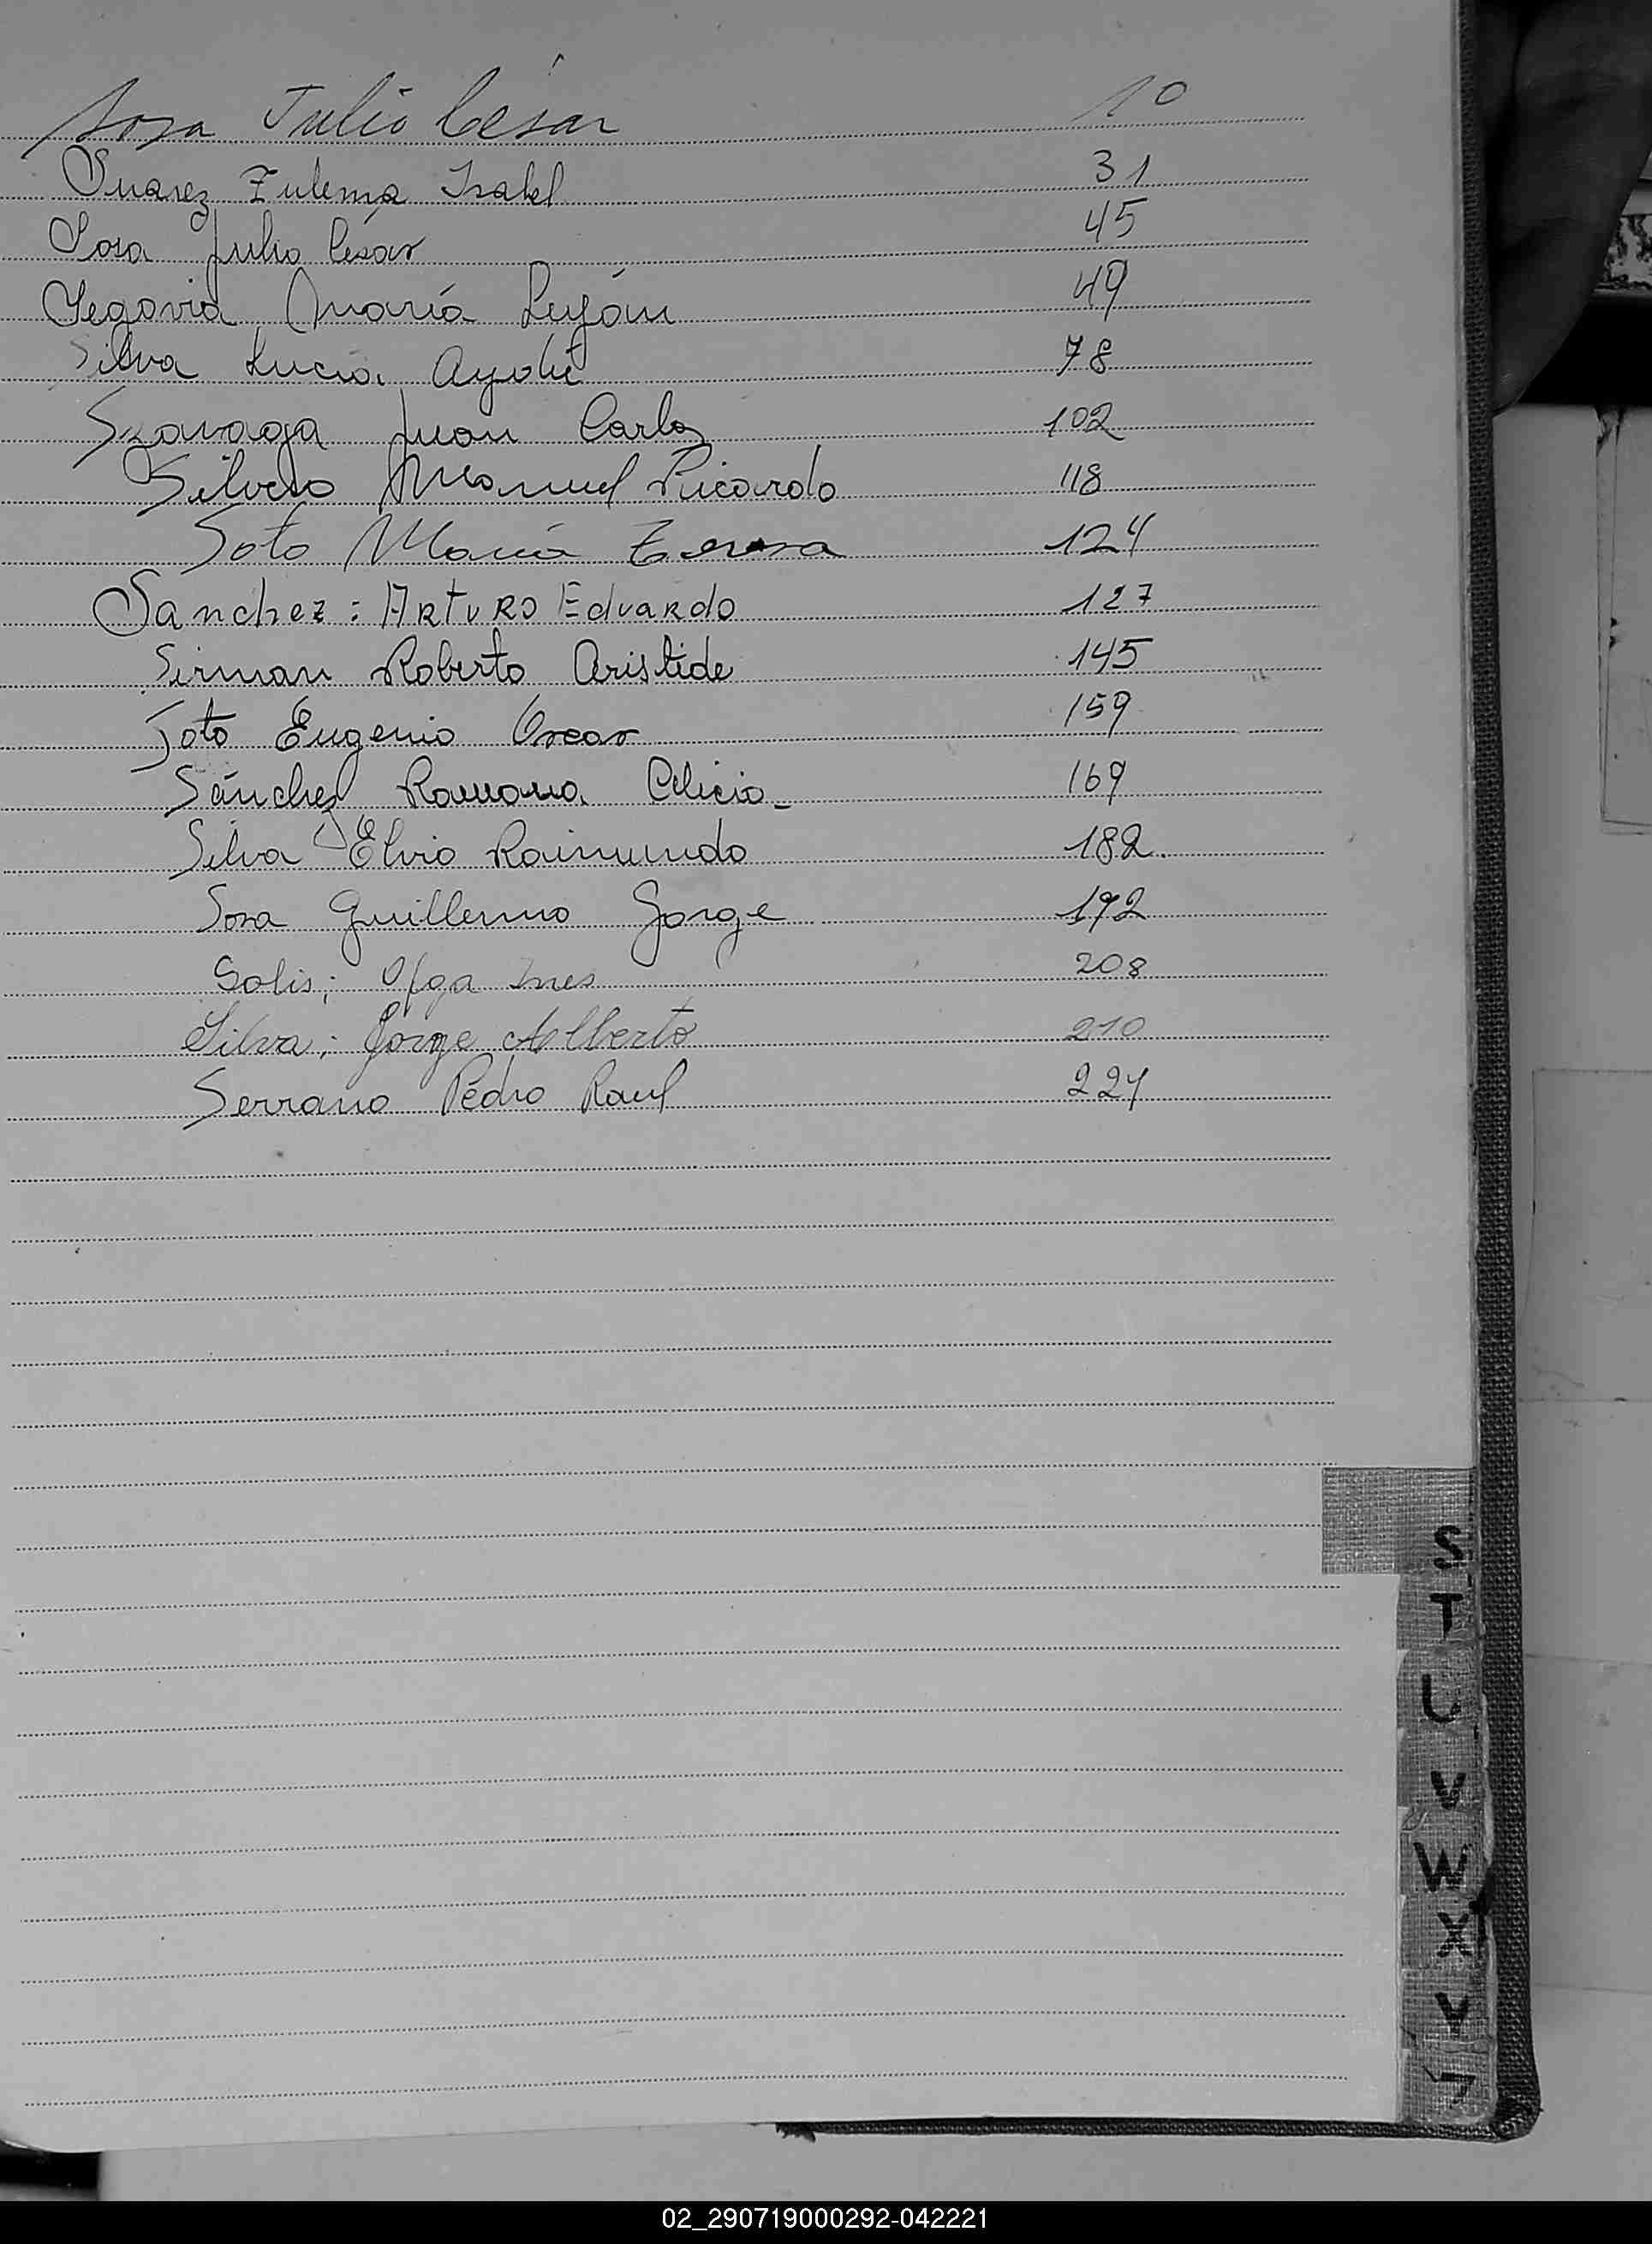 Sosa Julio César 10
Suarez Zulema Isabel 31
Sosa Julio César 45
Segovia María Luján 49
Silva Lucia 78
Szavaga Juan Carlos 102
Silvero Manuel Ricardo 118
Soto María Teresa 124
Sanchez: ARTURO Eduardo 127
Sirman Roberto Aristide 145
Soto Eugenio Oscar 159
Sánchez Ramona 169
Silva Elvio Raimundo 182.
Sosa Guillermo Jorge 192
Solis; Olga Ines 208
Silva; Jorge Alberto 210
Serrano Pedro Raul 224
S
T
U
V
W
X
Y
02_290719000292-042221